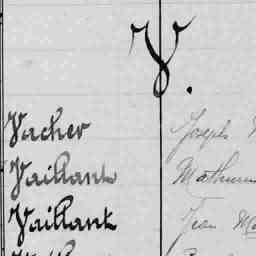 V.
Vacher Joseph
Vaillant Mathurin
Vaillant Jean